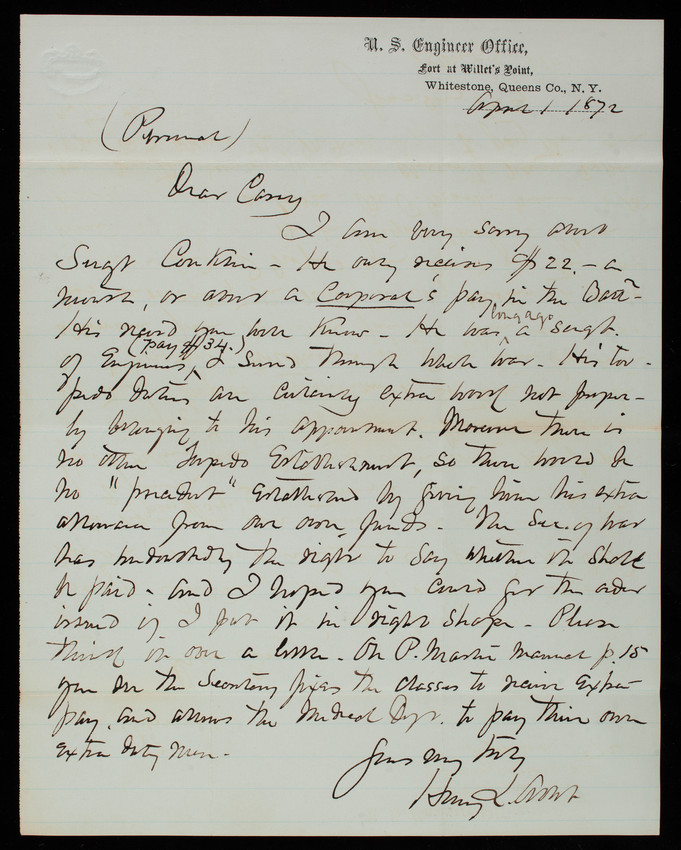 U. S. Engineer Office,
Fort at Willet's Point,
Whitestone, Queens Co., N. Y.
April 1 1872
(Personal)
Dear Casey
I am very sorry about
Sergt Conklin - He only receives $22.- a
month, or about a Corporal's pay, in the Battn-
His record you well know - He was long ago a sergt.
of Engineers, (pay $34.) & served through whole war. His tor-
pedo duties are certainly extra work not proper-
ly belonging to his appointment. Moreover there is
no other Torpedo Establishment, so there would be
no "precedent" established by giving him his extra
allowance from our own funds. The Sec. of War
has undoubtedly the right to say whether it shall
be paid - and I hoped you could get the order
issued if I put it in right shape - Please
think it over a little. On P. Master Manual p. 15
you see the Secretary fixes the classes to receive Extra
pay, and allows the Medical Dept. to pay their own
extra duty men.
Yours very truly
Henry L. Abbot